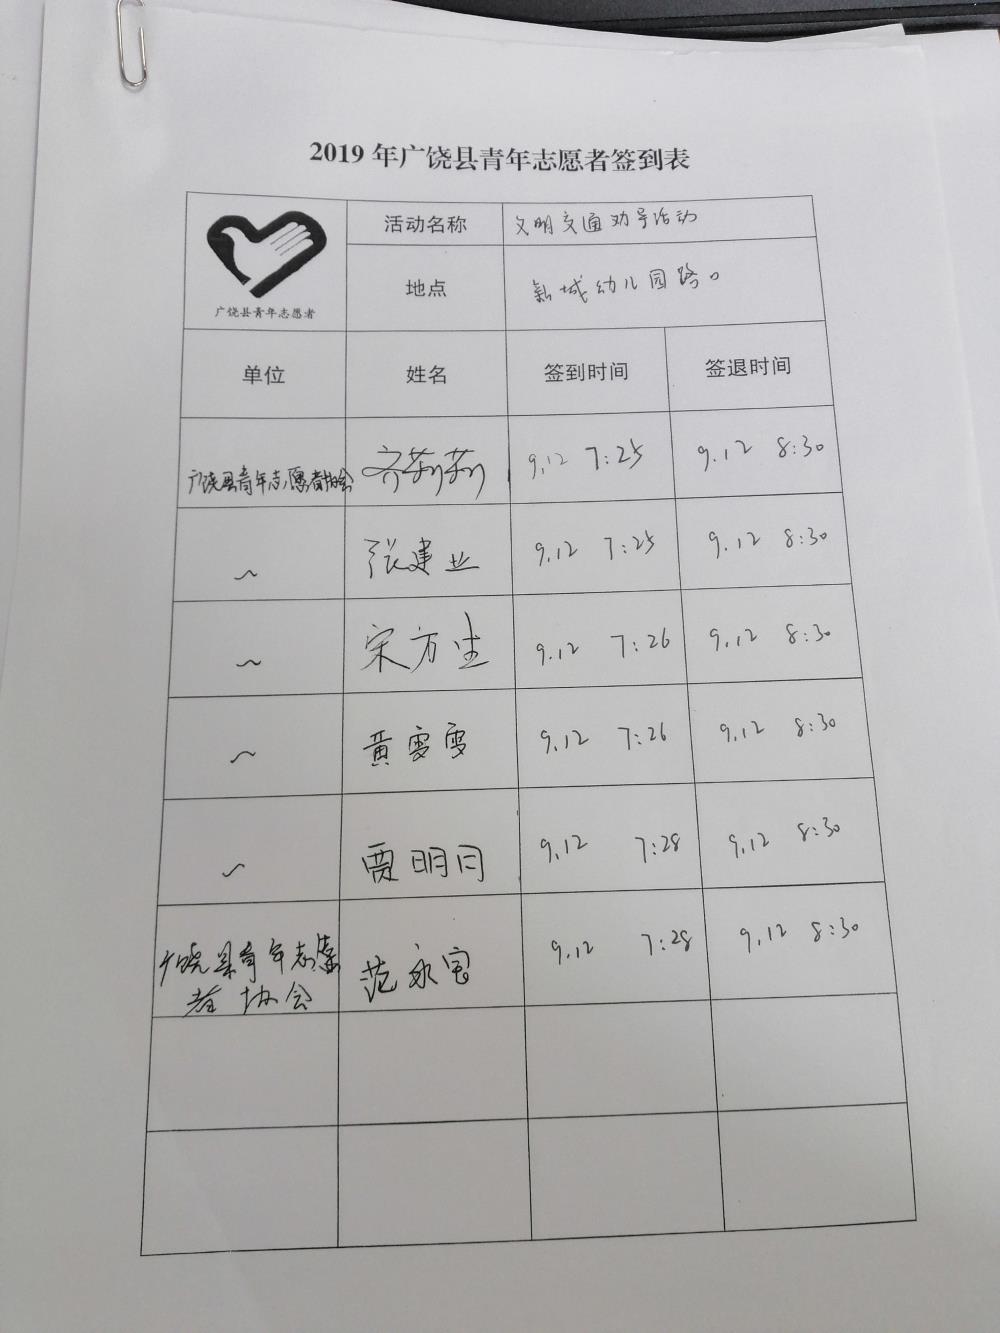 2019 年广饶县青年志愿者签到表
广饶县青年志愿者
活动名称 文明交通劝导活动
地点 新城幼儿园路口
单位 姓名 签到时间 签退时间
广饶县青年志愿者协会 齐莉莉 9.12 7:25 9.12 8:30
~ 张建业 9.12 7:25 9.12 8:30
~ 宋方生 9.12 7:26 9.12 8:30
~ 黄雯雯 9.12 7:26 9.12 8:30
~ 贾明月 9.12 7:28 9.12 8:30
广饶县青年志愿 范永宝 9.12 7:28 9.12 8:30
者协会